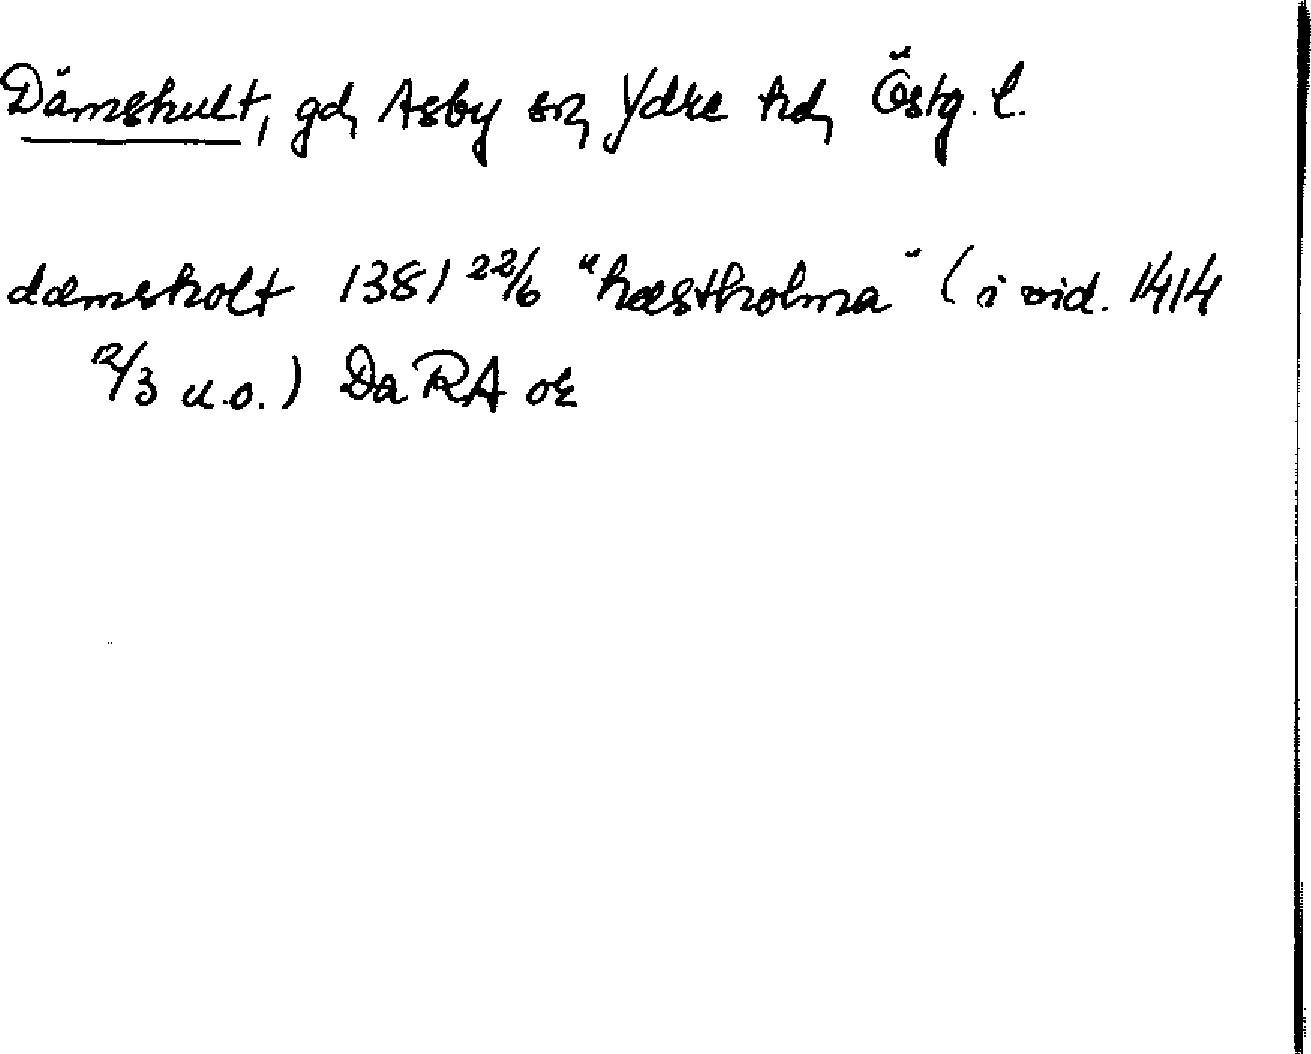 Dämshult, gd, Asby sn, Ydre hd, Östg. l.
dæmsholt 1381 22/6 "hæstholma" (i vid. 1414
12/3 u.o.) Da RA or